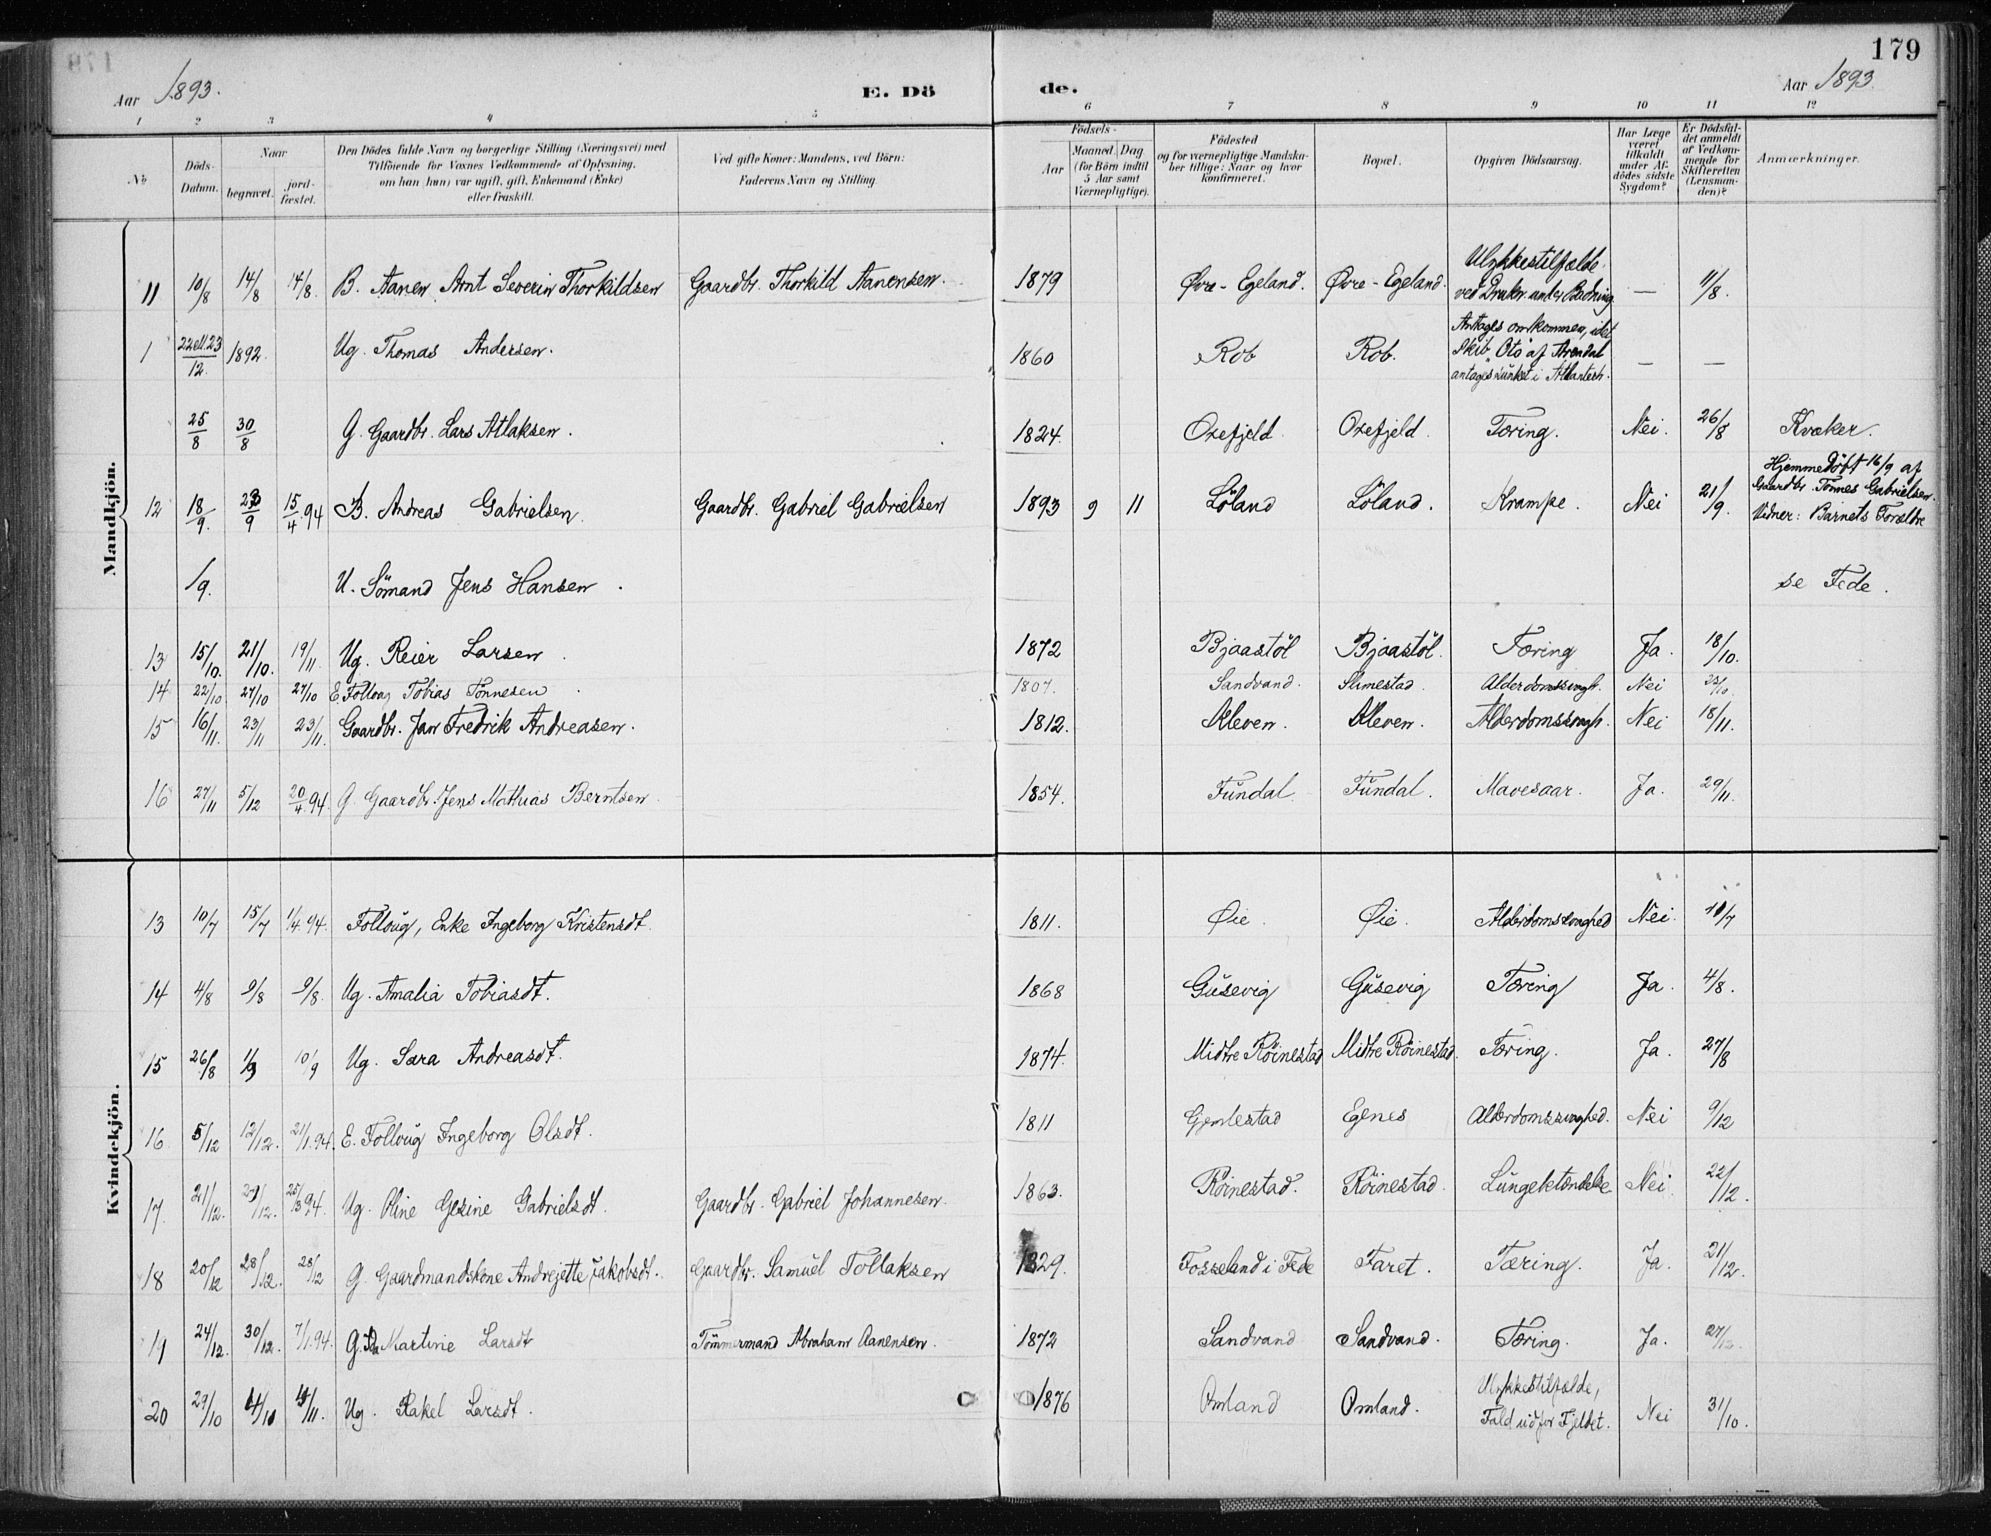 179
Aar 1893.
E. Dö
de.
Aar 1893
1 2 3 4 5 6 7 8 9 10 11 12
No
Döds-Datum.
Naar
begravet.
jord-fæstet.
Den Dödes fulde Navn og borgerlige Stilling (Næringsvei) med
Tilföiende for Voxnes Vedkommende af Oplysning,
om han (hun) var ugift, gift, Enkemand (Enke)
eller fraskilt.
Ved gifte Koner: Mandens, ved Börn:
Faderens Navn og Stilling.
Födsels-
Aar
Maaned. Dag
(for Börn indtil
5 Aar samt
Værnepligtige).
Födested
og for værnepligtige Mandska-
ber tillige: Naar og hvor
konfirmeret.
Bopæl.
Opgiven Dödsaarsag.
Har Læge
været
tilkaldt
under Af-
dödes sidste
Sygdom?
Er Dödsfal-
det anmeldt
af Vedkom-
mende for
Skifteretten
(Lensman-
den)?
Anmærkninger.
Mandkjön.
11 10/8 14/8 14/8. B. Aanen Arnt Severin Thorkildsen Gaardbr. Thorkild Aanensen. 1879 Øvre-Egeland. Øvre-Egeland. Ulykkestilfælde ved Drukn. under Badning — 11/8.
1 22 ell. 23/12. 1892. Ug. Thomas Andersen. 1860 Rob Rob. Antages omkommen, idet Skib "Oto" af Arendal antages sunket i Atlanterh. — —
25/8 30/8 G. Gaardbr. Lars Atlaksen. 1824. Oxefjeld Oxefjeld. Tæring. Nei. 26/8 Kvæker.
12 18/9. 23/9 15/4 94 B. Andreas Gabrielsen. Gaardbr. Gabriel Gabrielsen 1893 9 11 Löland Löland. Krampe. Nei 21/9. Hjemmedöbt 16/9 af Gaardbr. Tönnes Gabrielsen. Vidner: Barnets Forældre
/9. U. Sömand Jens Hansen. se Fede.
13 15/10. 21/10. 19/11. Ug. Reier Larsen. 1872 Bjaastöl Bjaastöl. Tæring Ja. 18/10.
14 22/10 27/10 27/10 E. Folloug Tobias Tönnesen. 1807. Sandvand. Slimestad. Alderdomssvagh. Nei 23/10.
15 16/11. 23/11 23/11. Gaardbr. Jan Fredrik Andreasen. 1812. Kleven. Kleven. Alderdomssvagh. Nei 18/11.
16 27/11 5/12 20/4. 94. G. Gaardbr. Jens Mathias Berntsen. 1854. Fundal. Fundal. Mavesaar. Ja. 29/11.
Kvindekjön.
13 10/7 15/7 1/4. 94. Folloug, Enke Ingeborg Kristensdt. 1811. Øie. Øie. Alderdomssvaghed Nei. 11/7
14 4/8 9/8 9/8. Ug. Amalia Tobiasdt. 1868 Gusevig Gusevig Tæring Ja. 4/8.
15 26/8 1/9 10/9 Ug. Sara Andreasdt. 1874. Midtre Röinestad Midtre Röinestad. Tæring. Ja. 27/8
16. 5/12 12/12. 21/1. 94. E. Folloug Ingeborg Olsdt. 1811 Gjemlestad Egenes Alderdomssvaghed. Nei 9/12
17. 21/12. 29/12. 25/3 94. Ug. Oline Gesine Gabrielsdt. Gaardbr. Gabriel Johannesen. 1863. Röinestad. Röinestad. Lungektændelse Nei. 22/12.
18 20/12 28/12. 28/12 G. Gaardmandskone Andrejette Jakobsdt. Gaardbr. Samuel Tollaksen 1829. Fosseland i Fede Faret. Tæring. Ja. 21/12.
19 24/12. 30/12. 7/1. 94. G. Martine Larsdt Tömmermand Abraham Aanensen. 1872 Sandvand Sandvand. Tæring. Ja. 27/12.
20 29/10 4/11 4/11. Ug. Rakel Larsdt. 1876 Omland Omland. Ulykkestilfælde, Fald udfor Fjeldet. Nei 31/10.